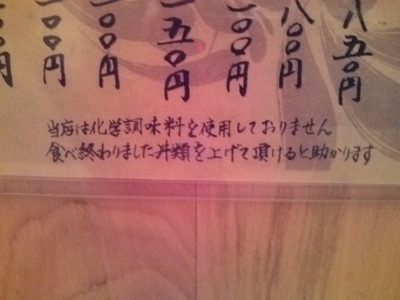 八五〇円
八〇〇円
一〇〇円
一五〇円
〇〇円
〇〇円
〇円
当店は化学調味料を使用しておりません
食べ終わりました丼類を上げて頂けると助かります